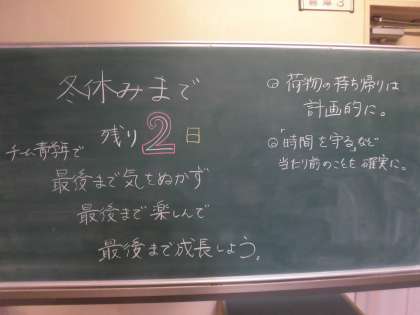 冬休みまで
残り2日
チーム青学年で
最後まで気をぬかず
最後まで楽しんで
最後まで成長しよう。
① 荷物の持ち帰りは
計画的に。
② 「時間を守る」など
当たり前のことを確実に。